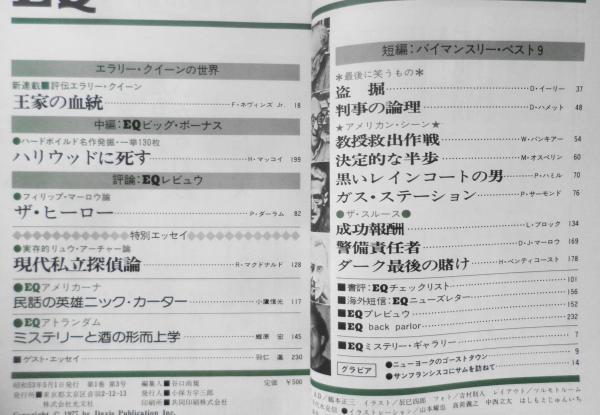 EQ
エラリー・クイーンの世界
新連載■評伝エラリー・クイーン
王家の血統 F・ネヴィンズ Jr. 18
中編：EQビッグ・ボーナス
●ハードボイルド名作発掘・一挙130枚
ハリウッドに死す H・マッコイ 199
評論：EQレビュウ
●フィリップ・マーロウ論
ザ・ヒーロー P・ダーラム 82
特別エッセイ
●実存的リュウ・アーチャー論
現代私立探偵論 R・マクドナルド 128
●EQアメリカーナ
民話の英雄ニック・カーター 小鷹信光 117
●EQアトランダム
ミステリーと酒の形而上学 郷原 宏 145
■ゲスト・エッセイ 羽仁 進 230
昭和53年5月1日発行 第1巻 第3号 編集人■谷口尚規 定価 ¥500
発行所■東京都文京区音羽2-12-13 発行人■小保方宇三郎
株式会社光文社 印刷所■共同印刷株式会社
Copyright © 1977 by Davis Publication Inc.
短編：バイマンスリー・ベスト9
＊最後に笑うもの＊
盗 掘 D・イーリー 37
判事の論理 D・ハメット 48
★アメリカン・シーン★
教授救出作戦 W・バンキアー 54
決定的な半歩 M・オスベリン 60
黒いレインコートの男 P・ハミル 70
ガス・ステーション P・サーモンド 76
●ザ・スルース●
成功報酬 L・ブロック 134
警備責任者 D・J・マーロウ 169
ダーク最後の賭け H・ペンティコースト 178
■書評：EQチェックリスト 101
■海外短信：EQニューズレター 156
■EQプレビュウ 152
■EQ back parlor 232
■EQミステリー・ギャラリー 7
グラビア
●ニューヨークのゴーストタウン 9
●サンフランシスコにサムを訪ねて 14
AD／橋本正三 イラスト／辰巳四郎 フォト／吉村則人 レイアウト／ツルモトルーム
●イラストレーション／山本耀也 真鍋義之 中西立太 はしもとじゅんいち